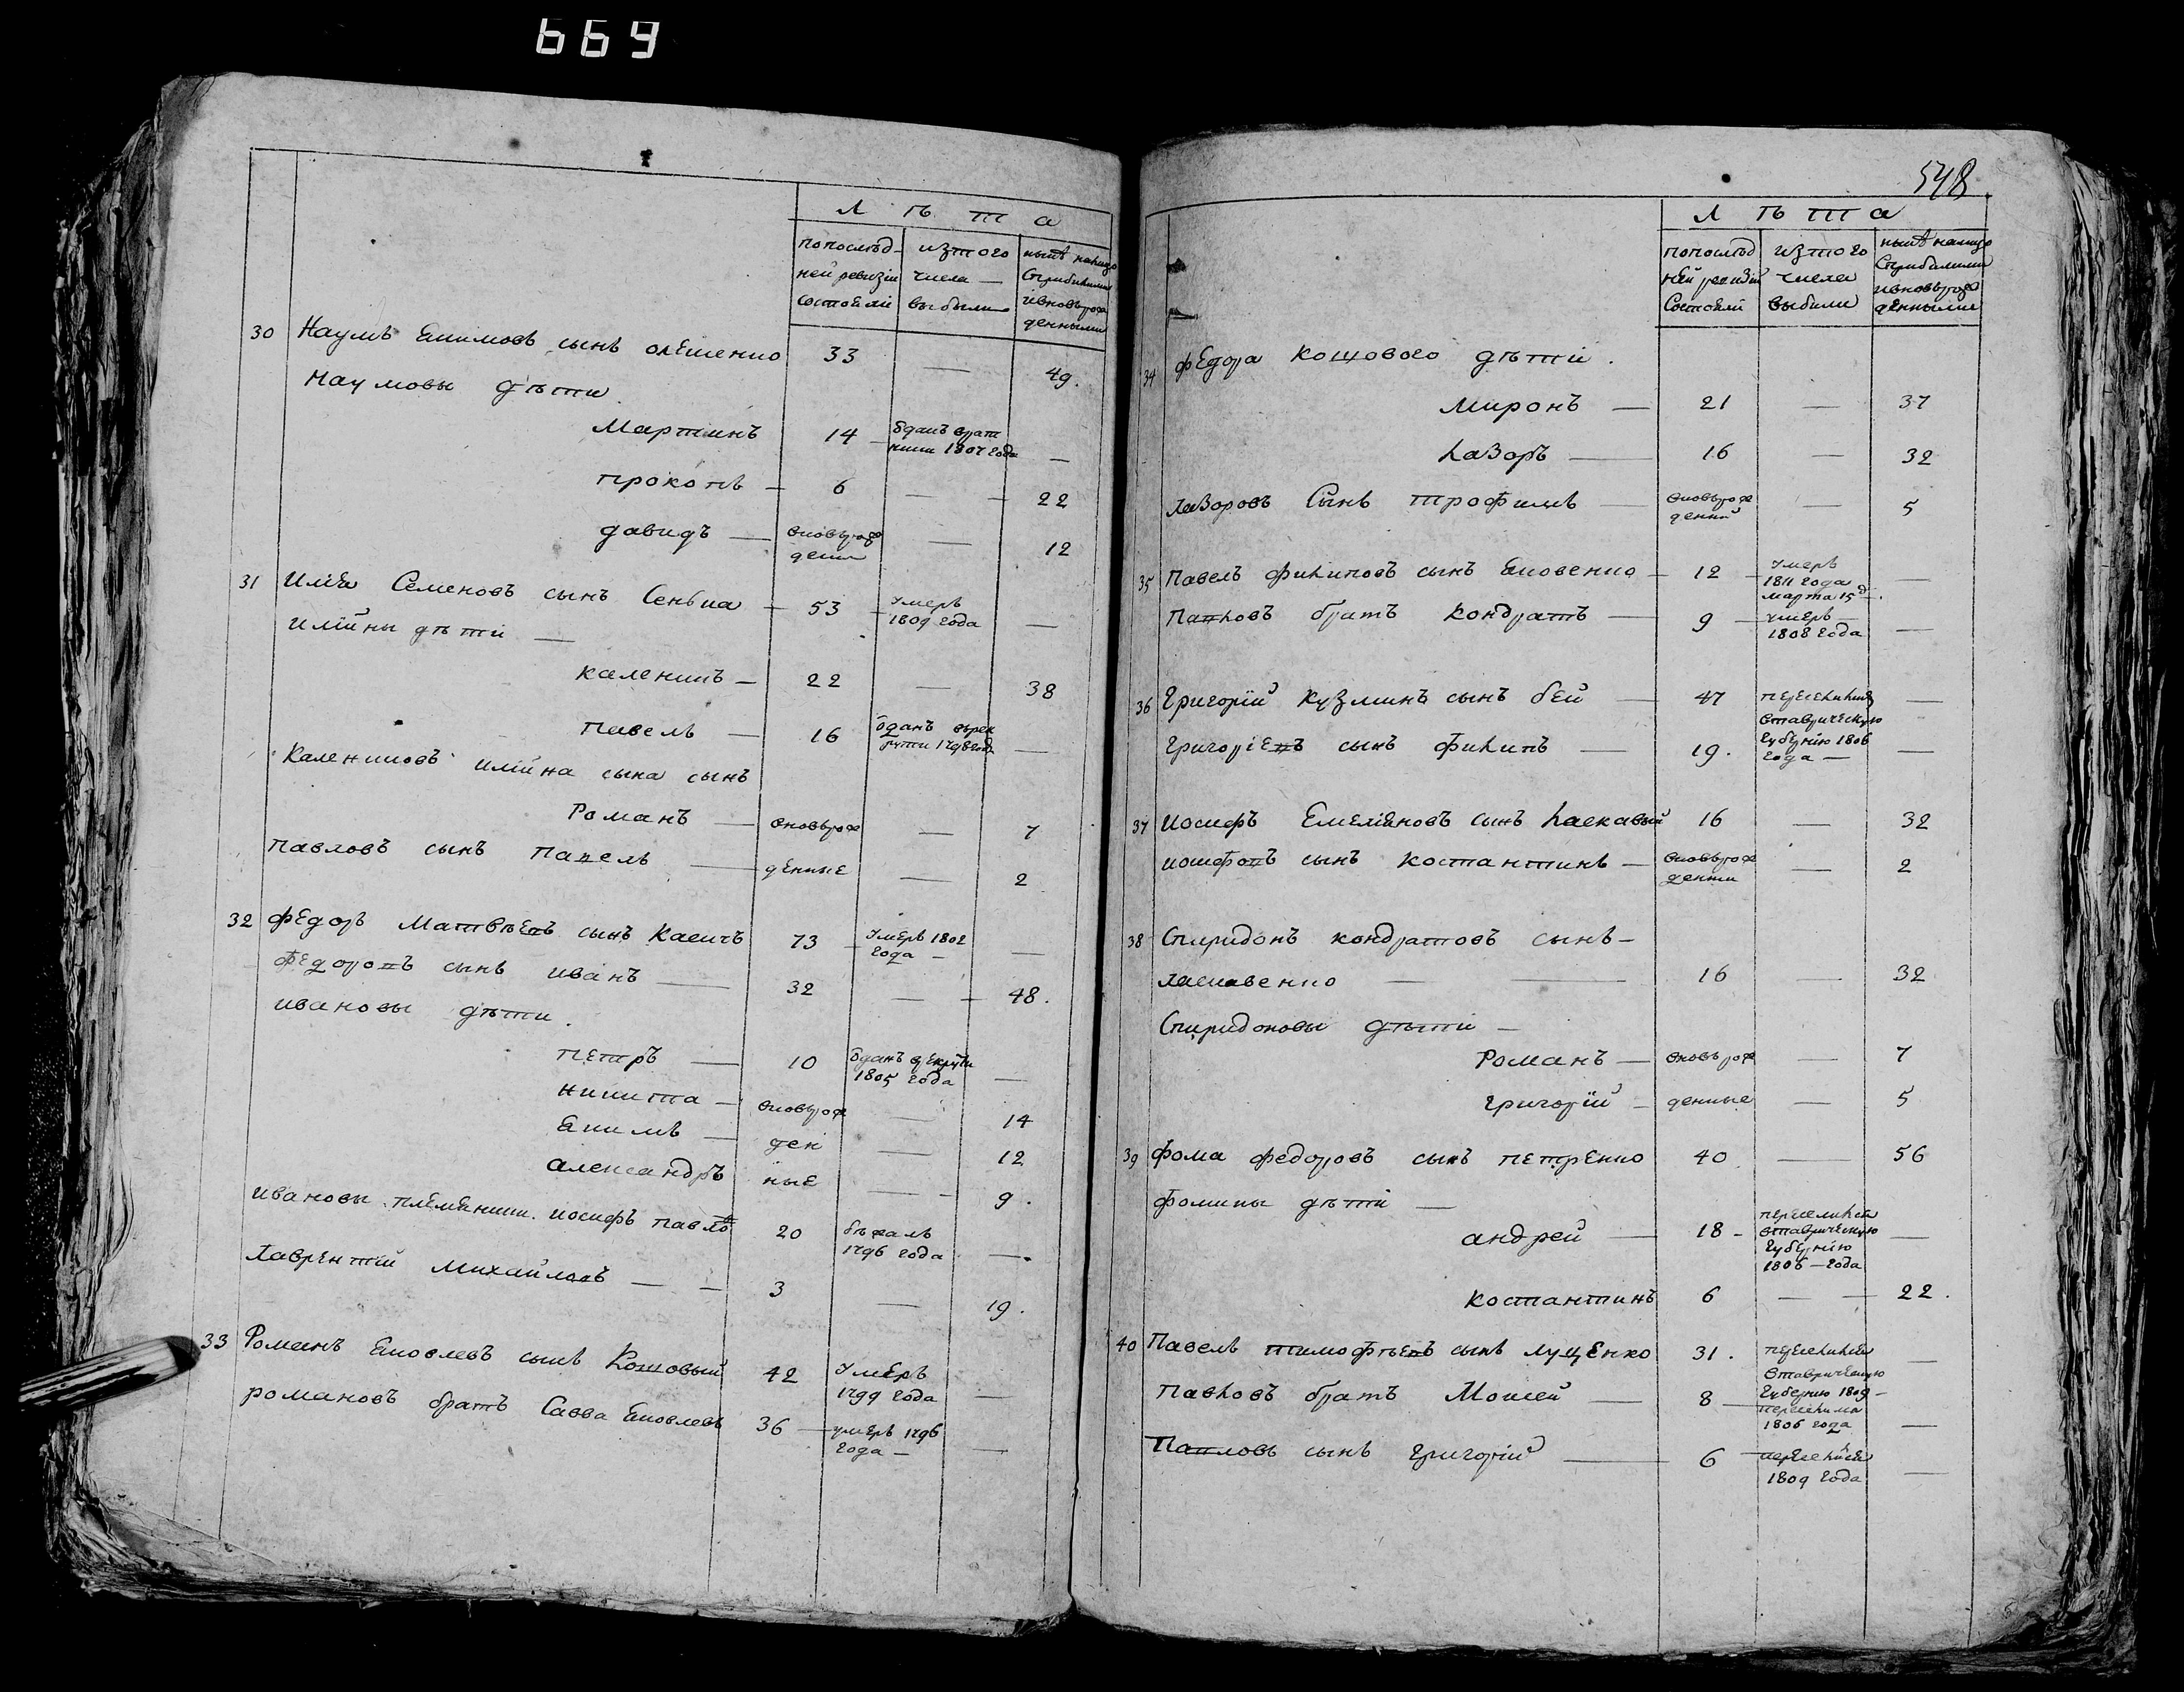 669
Лѣта
попослѣд-
ней ревизіи
состояли
изтого
числа
выбыли
нынѣ налицо
Сприбылыми
ивновърож
денными
30 Наумъ Екимовъ сынъ олешенко 33 — 49.
Наумовы дѣти
Мартинъ 14 — —
1807 года
прокопъ — 6 — 22
давидъ — вновърож — 12
дени
31 Илїя Семеновъ сынъ Сенька — 53 — умеръ —
1809 года
илїины дѣти —
каленикъ — 22 — 38
павелъ — 16 óданъ врек —
рути 1798 года
Калениковъ илїина сына сынъ
Романъ — вновърож — 7
павловъ сынъ павелъ — денные — 2
32 федоръ Матвѣевъ сынъ Касичъ 73 — умеръ 1802 —
года —
федоровъ сынъ иванъ — 32 — 48.
ивановы дѣти.
петръ — 10 óданъ врекрути —
1805 года
никита — вновърож — 14
Екимъ — ден — 12
александръ ные — 9.
ивановы племянники иосифъ павло 20 бѣжалъ —
1796 года
лаврентїй Михайловъ — — 3 — 19.
33 Романъ Яковлевъ сынъ Кошовый 42 умеръ —
1799 года
романовъ братъ Савва Яковлевъ 36 — умеръ 1796 —
года —
548
Лѣта
попослѣд
ней ревизіи
Состояли
изтого
числа
выбыли
нынѣ налицо
Сприбылыми
ивновърож
денными
34 федора кошового дѣти.
миронъ — 21 — 37
лазоръ — 16 — 32
лазоровъ Сынъ трофимъ — вновърож — 5
денній
35 Павелъ филиповъ сынъ Яковенко — 12 — умеръ —
1811 года
марта 15 д.
павловъ братъ кондратъ — 9 — умеръ —
1808 года
36 Григорїй кузминъ сынъ бей — 47 —
втаврическую
григорїевъ сынъ филипъ — 19. губернїю 1806 —
года —
37 иосифъ Емелїяновъ сынъ ласкавый 16 — 32
иосифовъ сынъ костантинъ — вновърож — 2
денни
38 Спиридонъ кондратовъ сынъ —
ласкавенко — 16 — 32
Спиридоновы дѣти —
Романъ — вновърож — 7
григорїй — денные — 5
39 фома федоровъ сынъ петренко 40 — 56
фомины дѣти —
андрей — 18 - переселился —
втаврическую
губернїю
1806 — года
костантинъ 6 — 22.
40 Павелъ тимофѣевъ сынъ луценко 31. переселился —
втаврическую
губернию 1809 —
павловъ братъ Мосей — 8 —
1806 года —
Павловъ сынъ григорїй — 6 — переселился —
1809 года